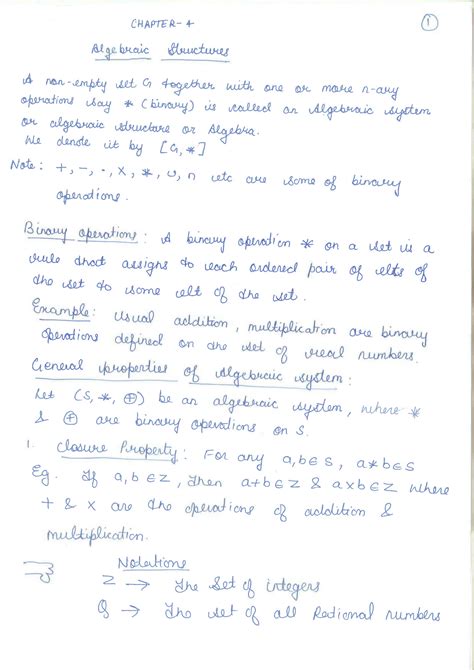 CHAPTER-4
1
Algebraic Structures
A non-empty set G together with one or more n-ary
operations say * (binary) is called an Algebraic system
or algebraic structure or Algebra.
We denote it by [G, *]
Note: +, -, ·, x, *, ∪, ∩ etc are some of binary
operations.
Binary operations: A binary operation * on a set is a
rule that assigns to each ordered pair of elts of
the set to some elt of the set.
Example: Usual addition, multiplication are binary
operations defined on the set of real numbers.
General properties of Algebraic system:
Let (S, *, ⊕) be an algebraic system, where *
& ⊕ are binary operations on S.
1. Closure Property: For any a,b∈S, a*b∈S
Eg. If a,b∈Z, then a+b∈Z & axb∈Z where
+ & x are the operations of addition &
multiplication.
Notations
Z → The Set of integers
Q → The set of all Rational numbers